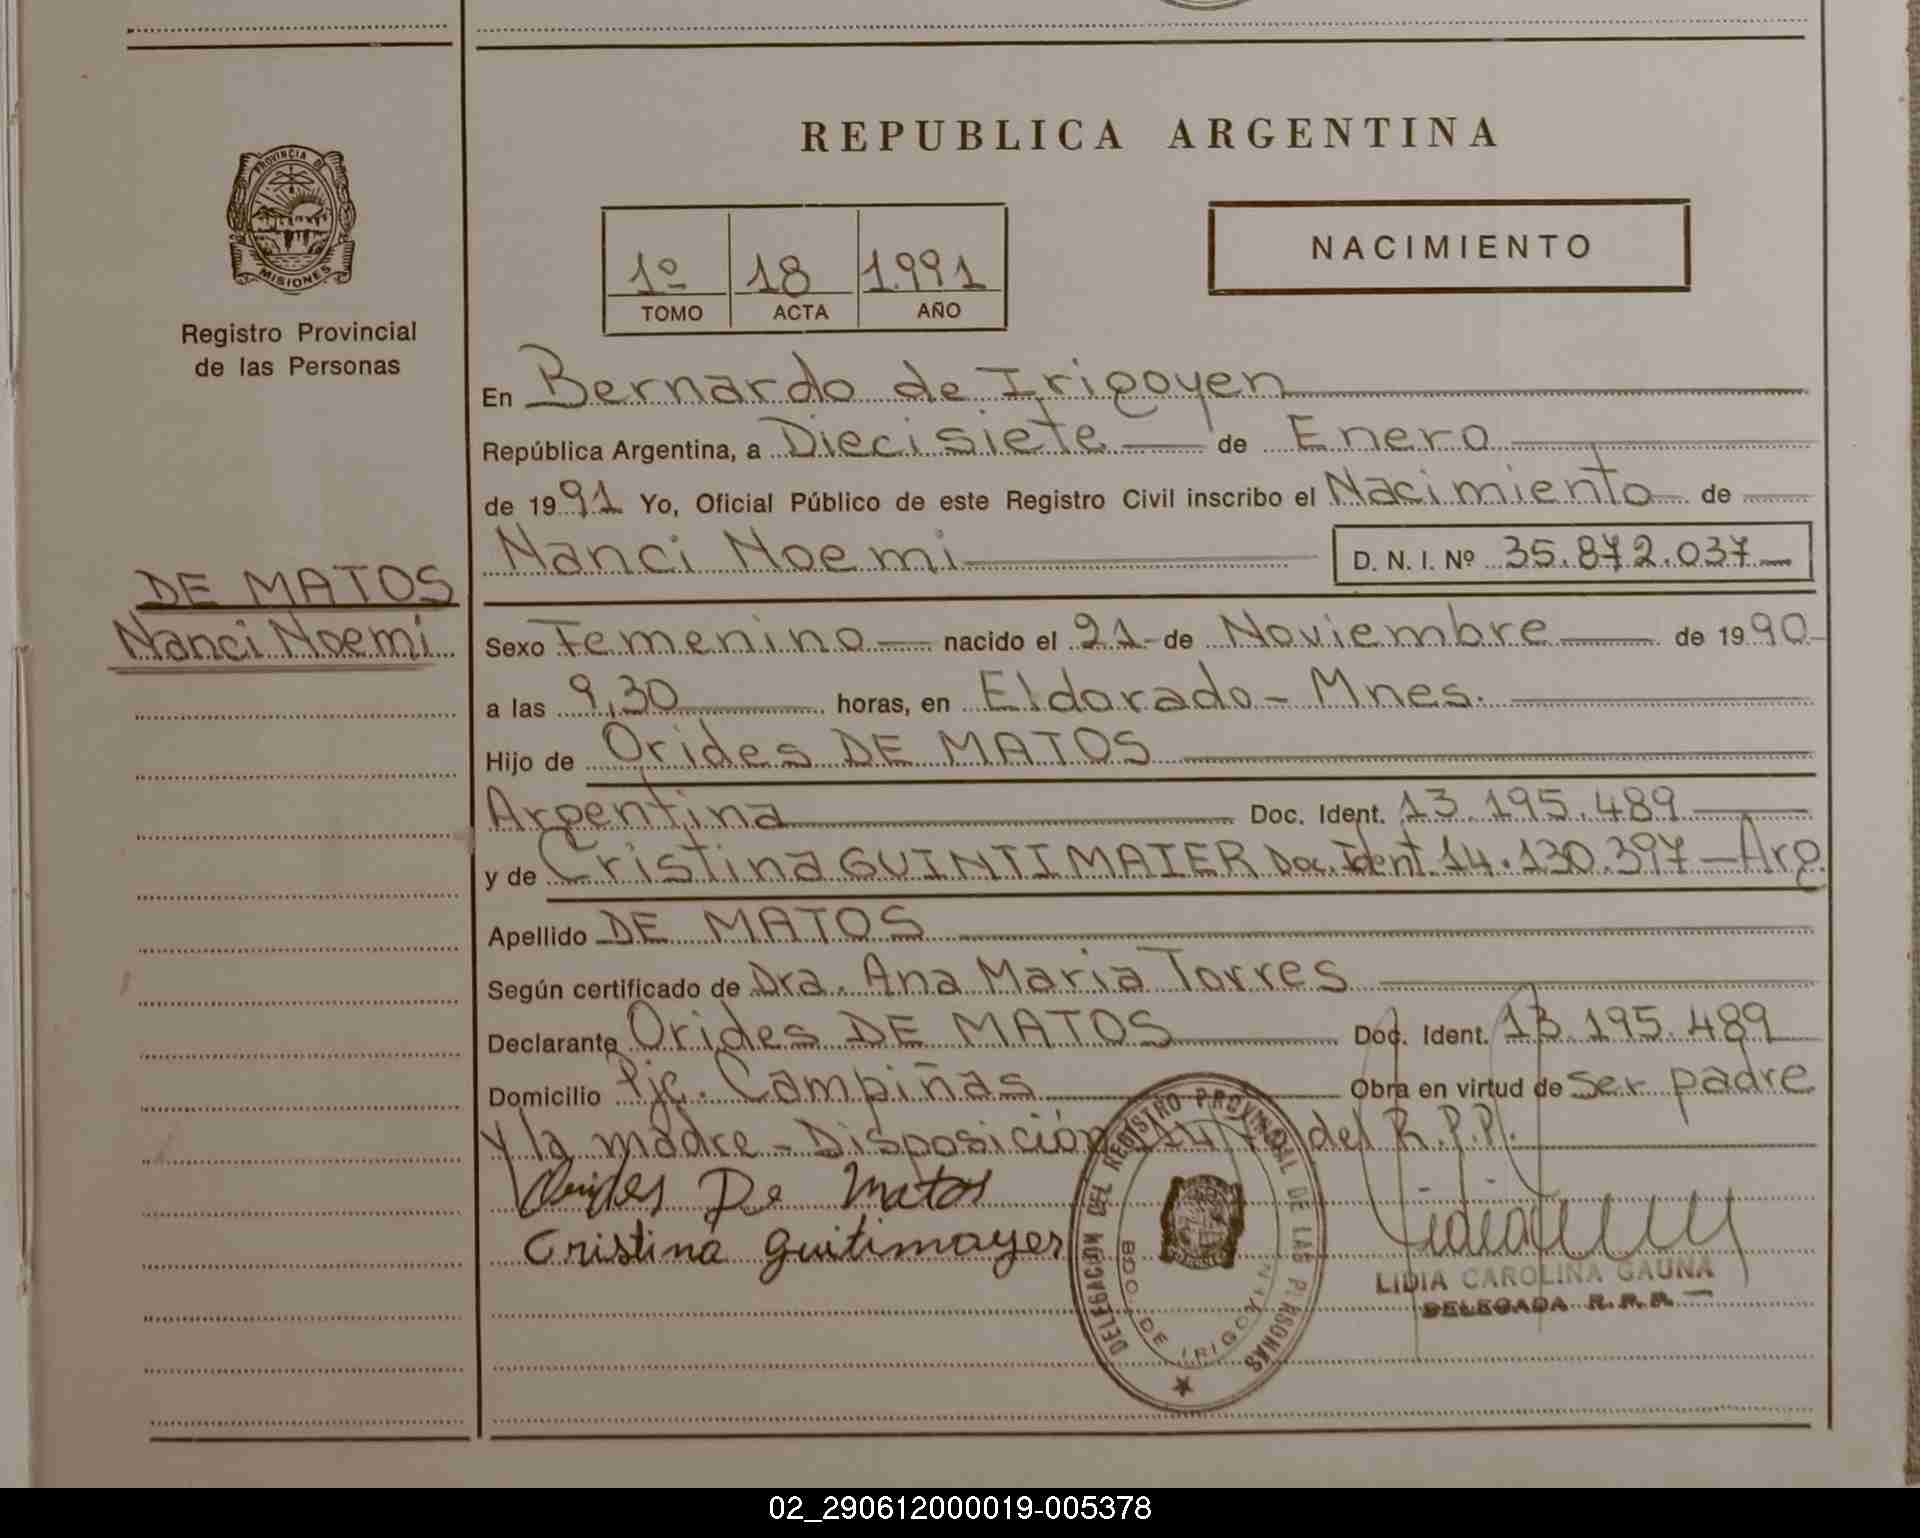 REPUBLICA ARGENTINA
PROVINCIA DE
MISIONES
Registro Provincial
de las Personas
1º 18 1.991
TOMO ACTA AÑO
NACIMIENTO
En Bernardo de Irigoyen
República Argentina, a Diecisiete de Enero
de 1991 Yo, Oficial Público de este Registro Civil inscribo el Nacimiento de
Nanci Noemi D. N. I. Nº 35.872.037
DE MATOS
Nanci Noemi
Sexo Femenino nacido el 21 de Noviembre de 1990
a las 9,30 horas, en Eldorado - Mnes.
Hijo de Orides DE MATOS
Argentina Doc. Ident. 13.195.489
y de Cristina GUINTIMAIER Doc. Ident. 14.130.397 - Arg.
Apellido DE MATOS
Según certificado de Dra. Ana Maria Torres
Declarante Orides DE MATOS Doc. Ident. 13.195.489
Domicilio Pje. Campiñas Obra en virtud de ser padre
y la madre - Disposición del R.P.P.
Orides De Matos
Cristina guitimayer
DELEGACION DEL REGISTRO PROVINCIAL DE LAS PERSONAS
BDO. DE IRIGOYEN
LIDIA CAROLINA GAUNA
DELEGADA R.P.P.
02_290612000019-005378